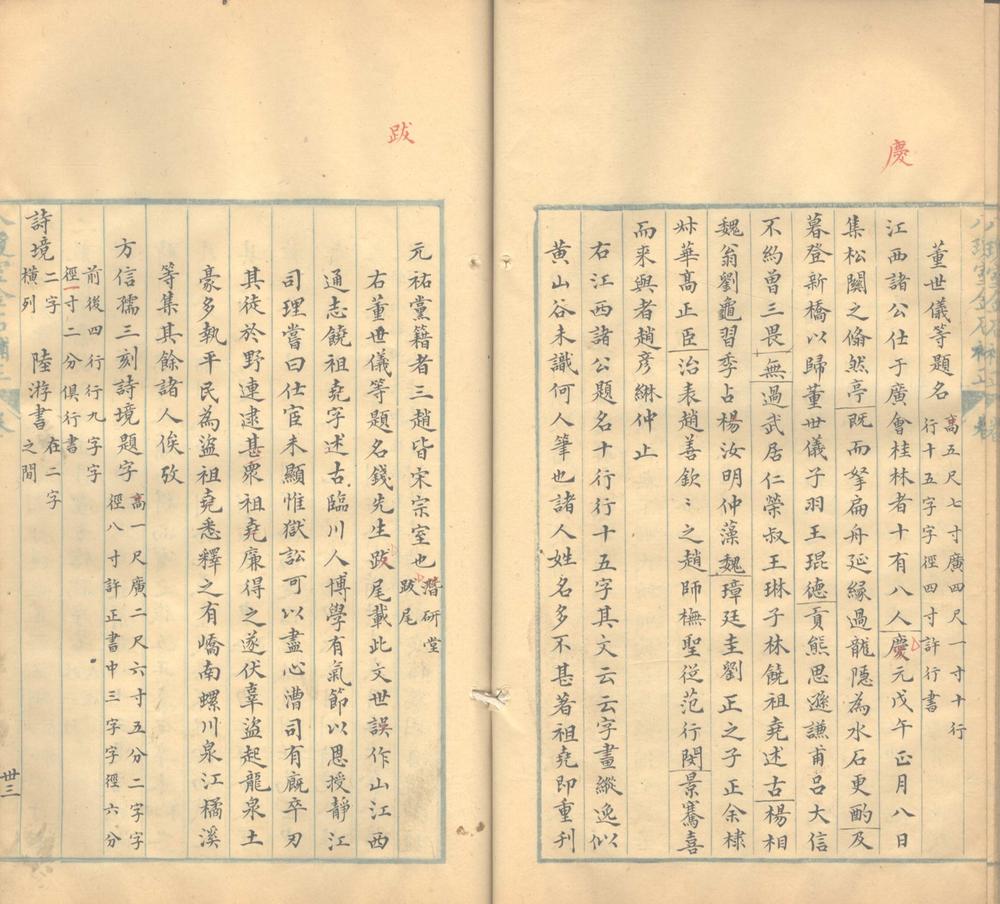 慶
董世儀等題名
高五尺七寸廣四尺一寸十行
行十五字字徑四寸許行書
江西諸公仕于廣會桂林者十有八人慶元戊午正月八日
集松關之翛然亭既而拏扁舟延緣過龍隱為水石更酌及
暮登新橋以歸董世儀子羽王琨德貢熊思遜謙甫呂大信
不約曾三畏無過武居仁榮叔王琳子林饒祖堯述古楊相
魏翁劉龜習季占楊汝明仲藻魏璋廷圭劉正之子正余棣
華高正臣治表趙善欽〻之趙師橅聖從范行閔景騫喜
而來與者趙彥綝仲止
右江西諸公題名十行行十五字其文云云字畫縱逸似
黃山谷未識何人筆也諸人姓名多不甚著祖堯即重刋
跋
元祐黨籍者三趙皆宋宗室也
潛研堂
跋尾
右董世儀等題名錢先生跋尾載此文世誤作山江西
通志饒祖堯字述古臨川人博學有氣節以恩授靜江
司理嘗曰仕宦未顯惟獄訟可以盡心漕司有廐卒刃
其徒於野連逮甚眾祖堯廉得之遂伏辜盜起龍泉土
豪多執平民為盜祖堯悉釋之有嶠南螺川泉江橘溪
等集其餘諸人俟攷
方信孺三刻詩境題字
高一尺廣二尺六寸五分二字字
徑八寸許正書中三字字徑六分
前後四行行九字字
徑一寸二分俱行書
詩境
二字
橫列
陸游書
在二字
之間
卅三